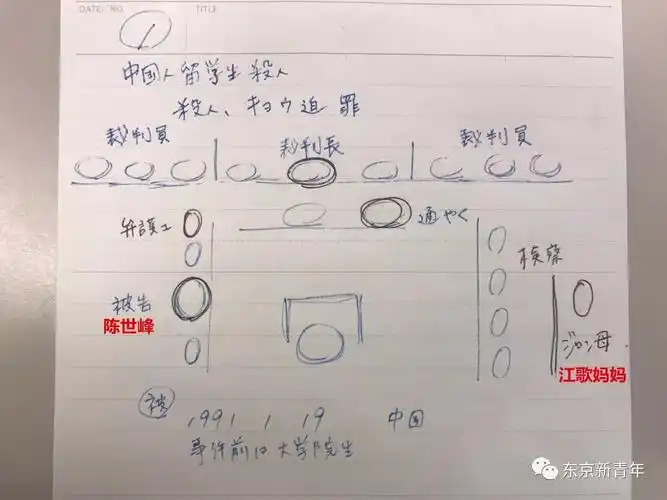 DATE NO.
TITLE
1
中国人留学生殺人
殺人、キョウ迫罪
裁判員
裁判長
裁判員
弁護士
通やく
検察
被告
陈世峰
ジャン母
江歌妈妈
被
1991 1 19 中国
事件前は大学院生
东京新青年